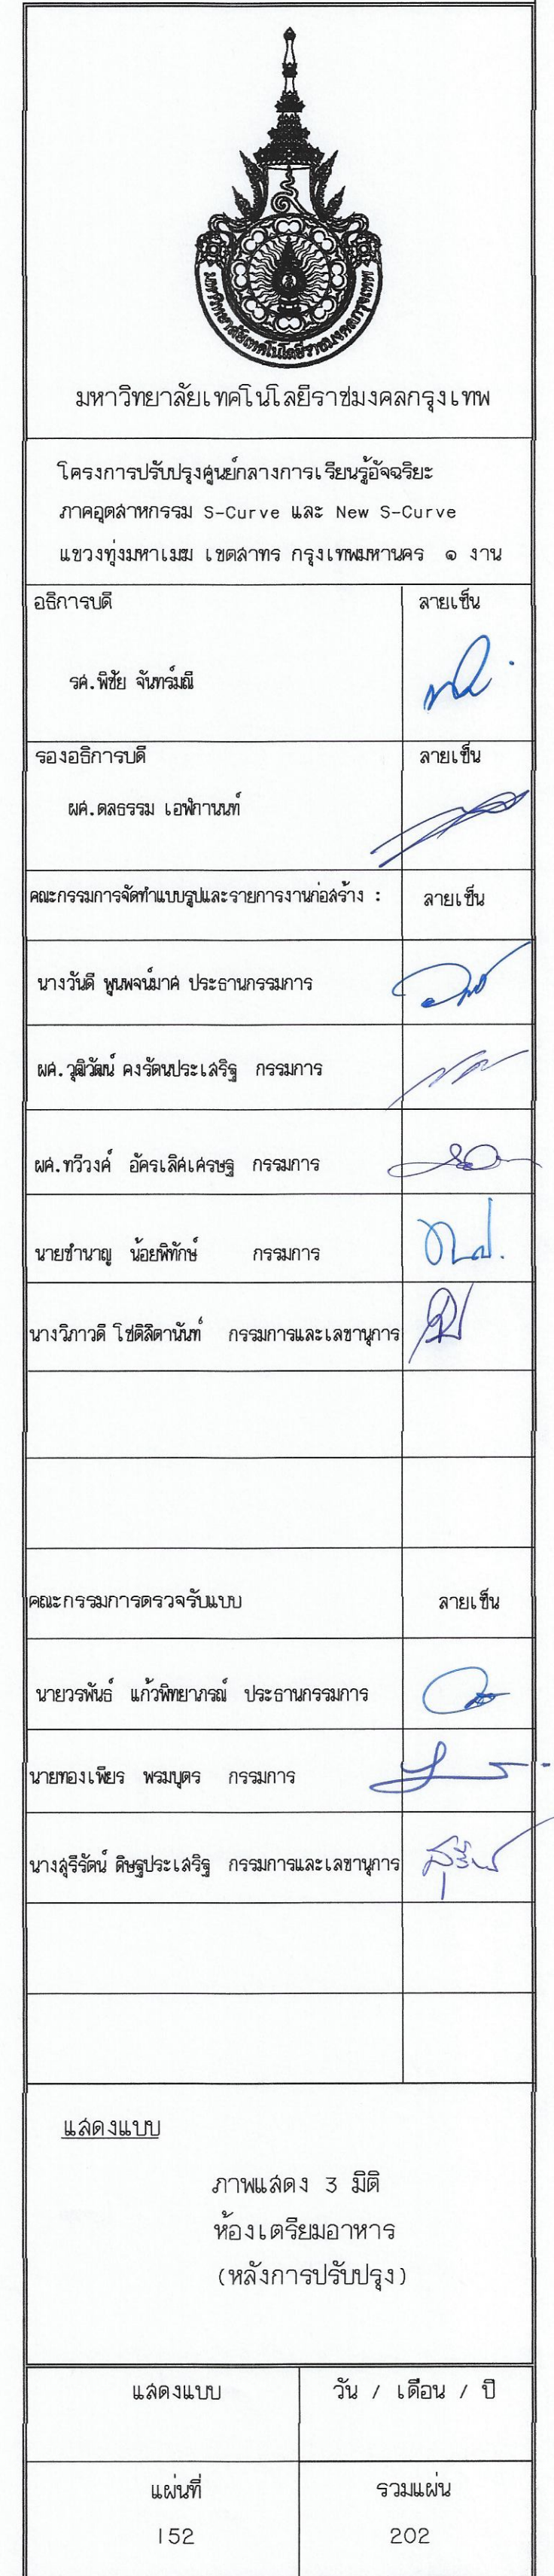 มหาวิทยาลัยเทคโนโลยีราชมงคลกรุงเทพ
มหาวิทยาลัยเทคโนโลยีราชมงคลกรุงเทพ
โครงการปรับปรุงศูนย์กลางการเรียนรู้อัจฉริยะ
ภาคอุตสาหกรรม S-Curve และ New S-Curve
แขวงทุ่งมหาเมฆ เขตสาทร กรุงเทพมหานคร ๑ งาน
อธิการบดี ลายเซ็น
รศ.พิชัย จันทร์มณี
รองอธิการบดี ลายเซ็น
ผศ.ดลธรรม เอฬกานนท์
คณะกรรมการจัดทำแบบรูปและรายการงานก่อสร้าง : ลายเซ็น
นางวันดี พูนพจน์มาศ ประธานกรรมการ
ผศ.วุฒิวัฒน์ คงรัตนประเสริฐ กรรมการ
ผศ.ทวีวงศ์ อัครเลิศเศรษฐ กรรมการ
นายชำนาญ น้อยพิทักษ์ กรรมการ
นางวิภาวดี โชติลิตานันท์ กรรมการและเลขานุการ
คณะกรรมการตรวจรับแบบ ลายเซ็น
นายวรพันธ์ แก้วพิทยาภรณ์ ประธานกรรมการ
นายทองเพียร พรมบุตร กรรมการ
นางสุรีรัตน์ ดิษฐประเสริฐ กรรมการและเลขานุการ
แสดงแบบ
ภาพแสดง 3 มิติ
ห้องเตรียมอาหาร
(หลังการปรับปรุง)
แสดงแบบ วัน / เดือน / ปี
แผ่นที่ รวมแผ่น
152 202